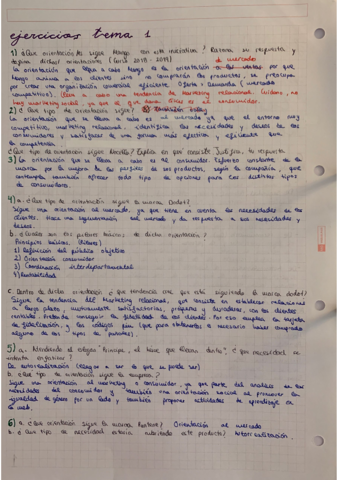 ejercicios tema 1
1) ¿Qué orientación sigue Mango con esta iniciativa? Razona su respuesta y
defina dichas orientaciones (Curso 2018-2019) al mercado
La orientación que lleva a cabo Mango es la orientación a las ventas por que,
productos, se preocupa
por crear una organización comercial eficiente. Oferta > Demanda (mercado
competitivo). lleva a cabo una tendencia de Marketing relacional. Cuidado, no
hay marketing social, ya que el que dona dinero es el consumidor.
2) ¿Qué tipo de orientación sigue?
La orientación que se lleva a cabo es al mercado ya que el entorno es muy
competitivo, marketing relacional, identifica las necesidades y deseos de los
consumidores y satisfacer de una forma más efectiva y eficiente que
la competencia.
¿Qué tipo de orientación sigue Nestlé? Explica en qué consiste. Justifica tu respuesta
3) La orientación que se lleva a cabo es al consumidor. Esfuerzo constante de la
marca por la mejora de los de sus productos, según la compañía, que
contempla también ofrecer todo tipo de opciones para los distintos tipos
de consumidores.
4) a. ¿Qué tipo de orientación sigue la marca Dodot?
Sigue una orientación al mercado, ya que tiene en cuenta las necesidades de los
clientes. Hace una segmentación del mercado y da respuesta a sus necesidades y
deseos.
b. ¿Cuáles son los pilares básicos de dicha orientación?
Principios básicos (Pilares)
1) Definición del público objetivo
2) Orientación consumidor
3) Coordinación interdepartamental
4) Rentabilidad
c. Dentro de dicha orientación ¿qué tendencia cree que está siguiendo la marca dodot?
Sigue la tendencia del Marketing relacional, que consiste en establecer relaciones
a largo plazo, mutuamente satisfactorias, con los clientes
la fidelidad de los clientes. Por eso emplea la tarjeta
de fidelización, y los códigos pin (que para obtenerlos es necesario haber comprado
alguno de los tipos de pañales).
5) a. Atendiendo al eslogan "Princesa, el tiene que lleves dentro", ¿qué necesidad se
intenta satisfacer?
De autorrealización (llegar a ser lo que se puede ser)
b. ¿Qué tipo de orientación sigue la empresa?
Sigue una orientación al marketing o consumidor, ya que parte del análisis de las
necesidades del consumidor y también una orientación social al promover la
igualdad de género por un lado y también propone actividades de aprendizaje en
la web.
6) a. ¿Qué orientación sigue la marca Orientación al mercado
b. ¿Qué tipo de necesidad estaría cubriendo este producto? Autorrealización.